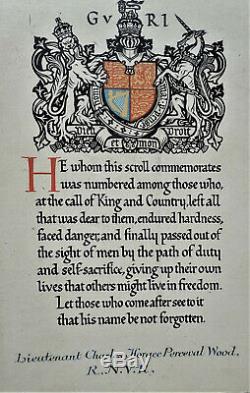 GVRI
DIEU ET MON DROIT
HE whom this scroll commemorates
was numbered among those who,
at the call of King and Country, left all
that was dear to them, endured hardness,
faced danger, and finally passed out of
the sight of men by the path of duty
and self-sacrifice, giving up their own
lives that others might live in freedom.
Let those who come after see to it
that his name be not forgotten.
Lieutenant Charles Horace Perceval Wood.
R.N.V.R.
ebay